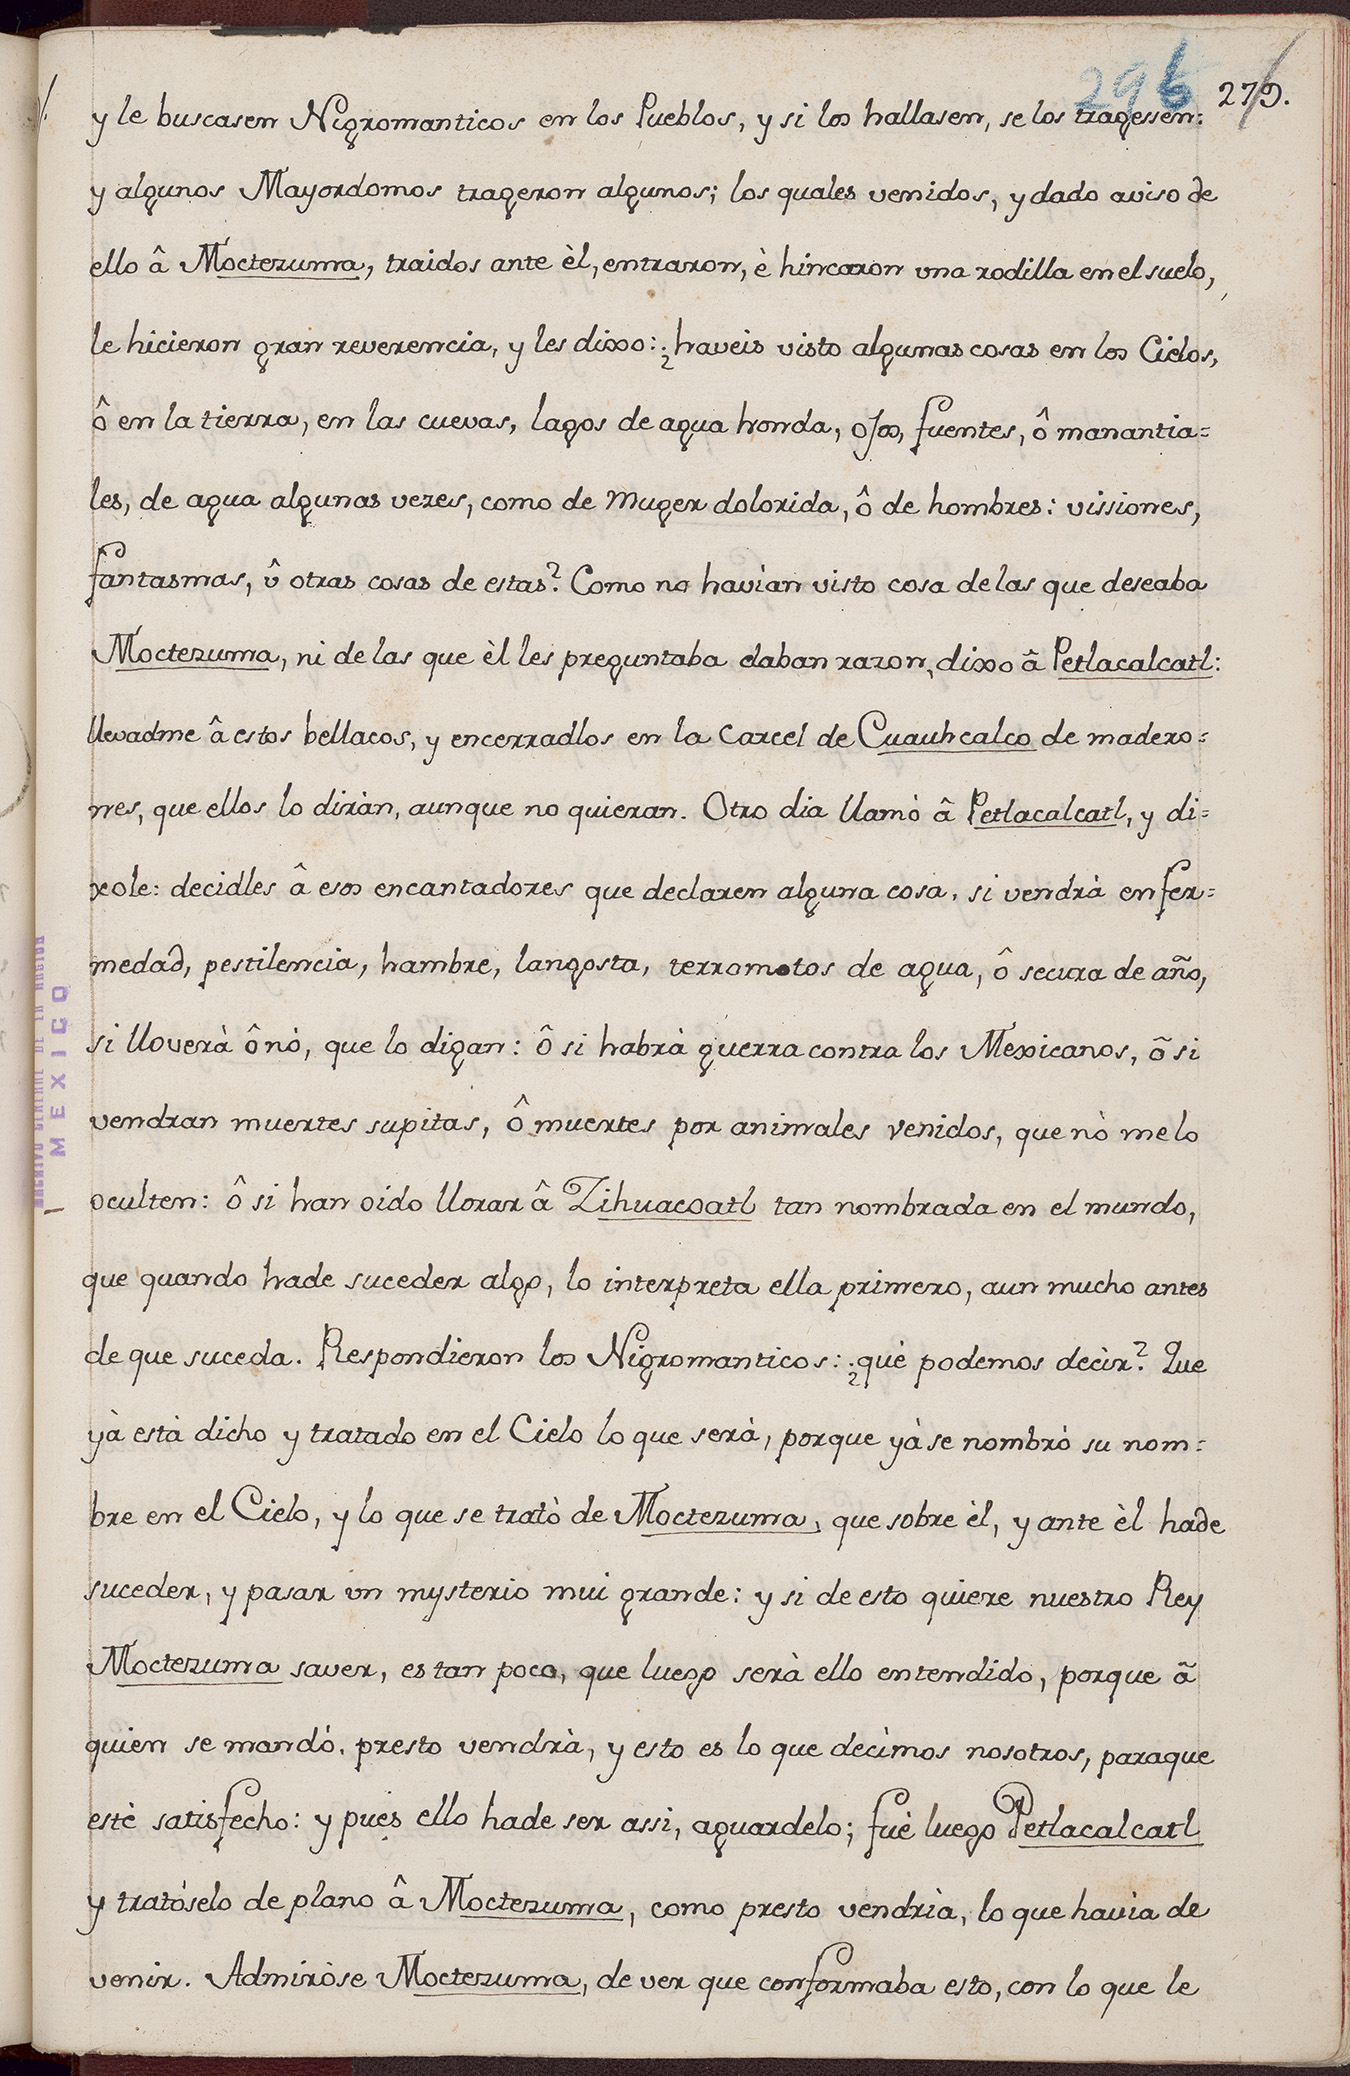 296 279.
y le buscasen Nigromanticos en los Pueblos, y si los hallasen, se los tragessen:
y algunos Mayordomos trageron algunos; los quales venidos, y dado aviso de
ello â Moctezuma, traidos ante èl, entraron, è hincaron una rodilla en el suelo,
le hicieron gran reverencia, y les dixo: ¿haveis visto algunas cosas en los Cielos,
ô en la tierra, en las cuevas, lagos de agua honda, ojos, fuentes, ô manantia=
les, de agua algunas vezes, como de Muger dolorida, ô de hombres: vissiones,
fantasmas, û otras cosas de estas? Como no havìan visto cosa de las que deseaba
Moctezuma, ni de las que èl les preguntaba daban razon, dixo â Petlacalcatl:
llevadme â estos bellacos, y encerradlos en la Carcel de Cuauhcalco de madero=
nes, que ellos lo diràn, aunque no quieran. Otro dia llamò â Petlacalcatl, y di=
xole: decidles â esos encantadores que declaren alguna cosa, si vendrà enfer=
medad, pestilencia, hambre, langosta, terromotos de agua, ô secura de año,
si lloverà ô nò, que lo digan: ô si habrà guerra contra los Mexicanos, õ si
vendran muertes supitas, ô muertes por animales venidos, que nò me lo
oculten: ô si han oido llorar â Zihuacoatl tan nombrada en el mundo,
que quando hade suceder algo, lo interpreta ella primero, aun mucho antes
de que suceda. Respondieron los Nigromanticos: ¿què podemos decìr? Que
yà està dicho y tratado en el Cielo lo que serà, porque yà se nombrò su nom=
bre en el Cielo, y lo que se tratò de Moctezuma, que sobre èl, y ante èl hade
suceder, y pasar un mysterio mui grande: y si de esto quiere nuestro Rey
Moctezuma saver, es tan poco, que luego serà ello entendido, porque ã
quien se mandò, presto vendrà, y esto es lo que decìmos nosotros, paraque
estè satisfecho: y pues ello hade ser assi, aguardelo; fuè luego Petlacalcatl
y tratóselo de plano â Moctezuma, como presto vendrìa, lo que havia de
venir. Admiròse Moctezuma, de ver que conformaba esto, con lo que le
ARCHIVO GENERAL DE LA NACION
MEXICO